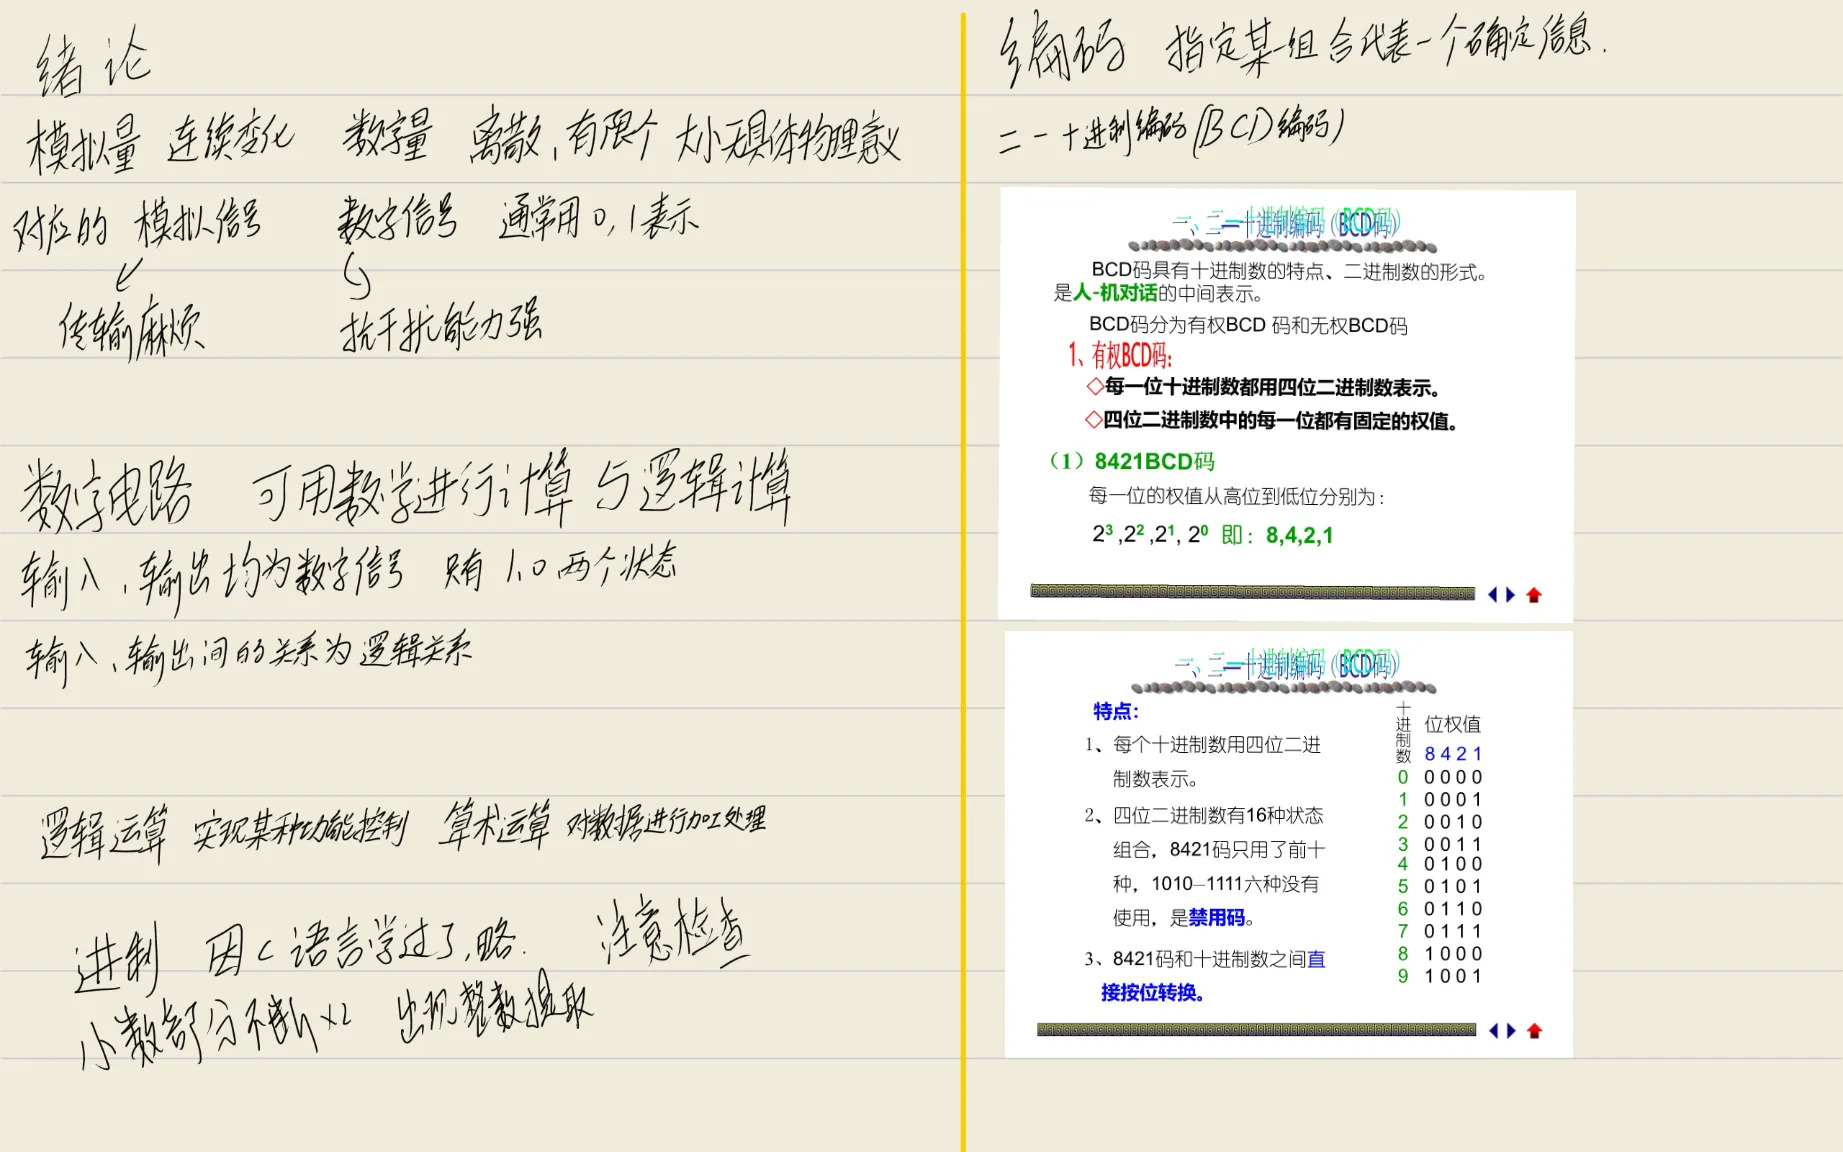 绪论
模拟量 连续变化 数字量 离散,有限个 大小无具体物理意义
对应的 模拟信号 数字信号 通常用0,1表示
传输麻烦 抗干扰能力强
数字电路 可用数学进行计算与逻辑计算
输入、输出均为数字信号 只有1,0两个状态
输入、输出间的关系为逻辑关系
逻辑运算 实现某种功能控制 算术运算 对数据进行加工处理
进制 因C语言学过了,略. 注意检查
小数部分不断×2 出现整数提取
编码 指定某一组合代表一个确定信息.
二一十进制编码(BCD编码)
一、二一十进制编码(BCD码)
BCD码具有十进制数的特点、二进制数的形式。
是人-机对话的中间表示。
BCD码分为有权BCD 码和无权BCD码
1、有权BCD码:
◇每一位十进制数都用四位二进制数表示。
◇四位二进制数中的每一位都有固定的权值。
(1)8421BCD码
每一位的权值从高位到低位分别为:
2³,2²,2¹, 2⁰ 即: 8,4,2,1
一、二一十进制编码(BCD码)
特点:
1、每个十进制数用四位二进
制数表示。
2、四位二进制数有16种状态
组合,8421码只用了前十
种,1010—1111六种没有
使用,是禁用码。
3、8421码和十进制数之间直
接按位转换。
十进制数 位权值
8 4 2 1
0 0 0 0 0
1 0 0 0 1
2 0 0 1 0
3 0 0 1 1
4 0 1 0 0
5 0 1 0 1
6 0 1 1 0
7 0 1 1 1
8 1 0 0 0
9 1 0 0 1